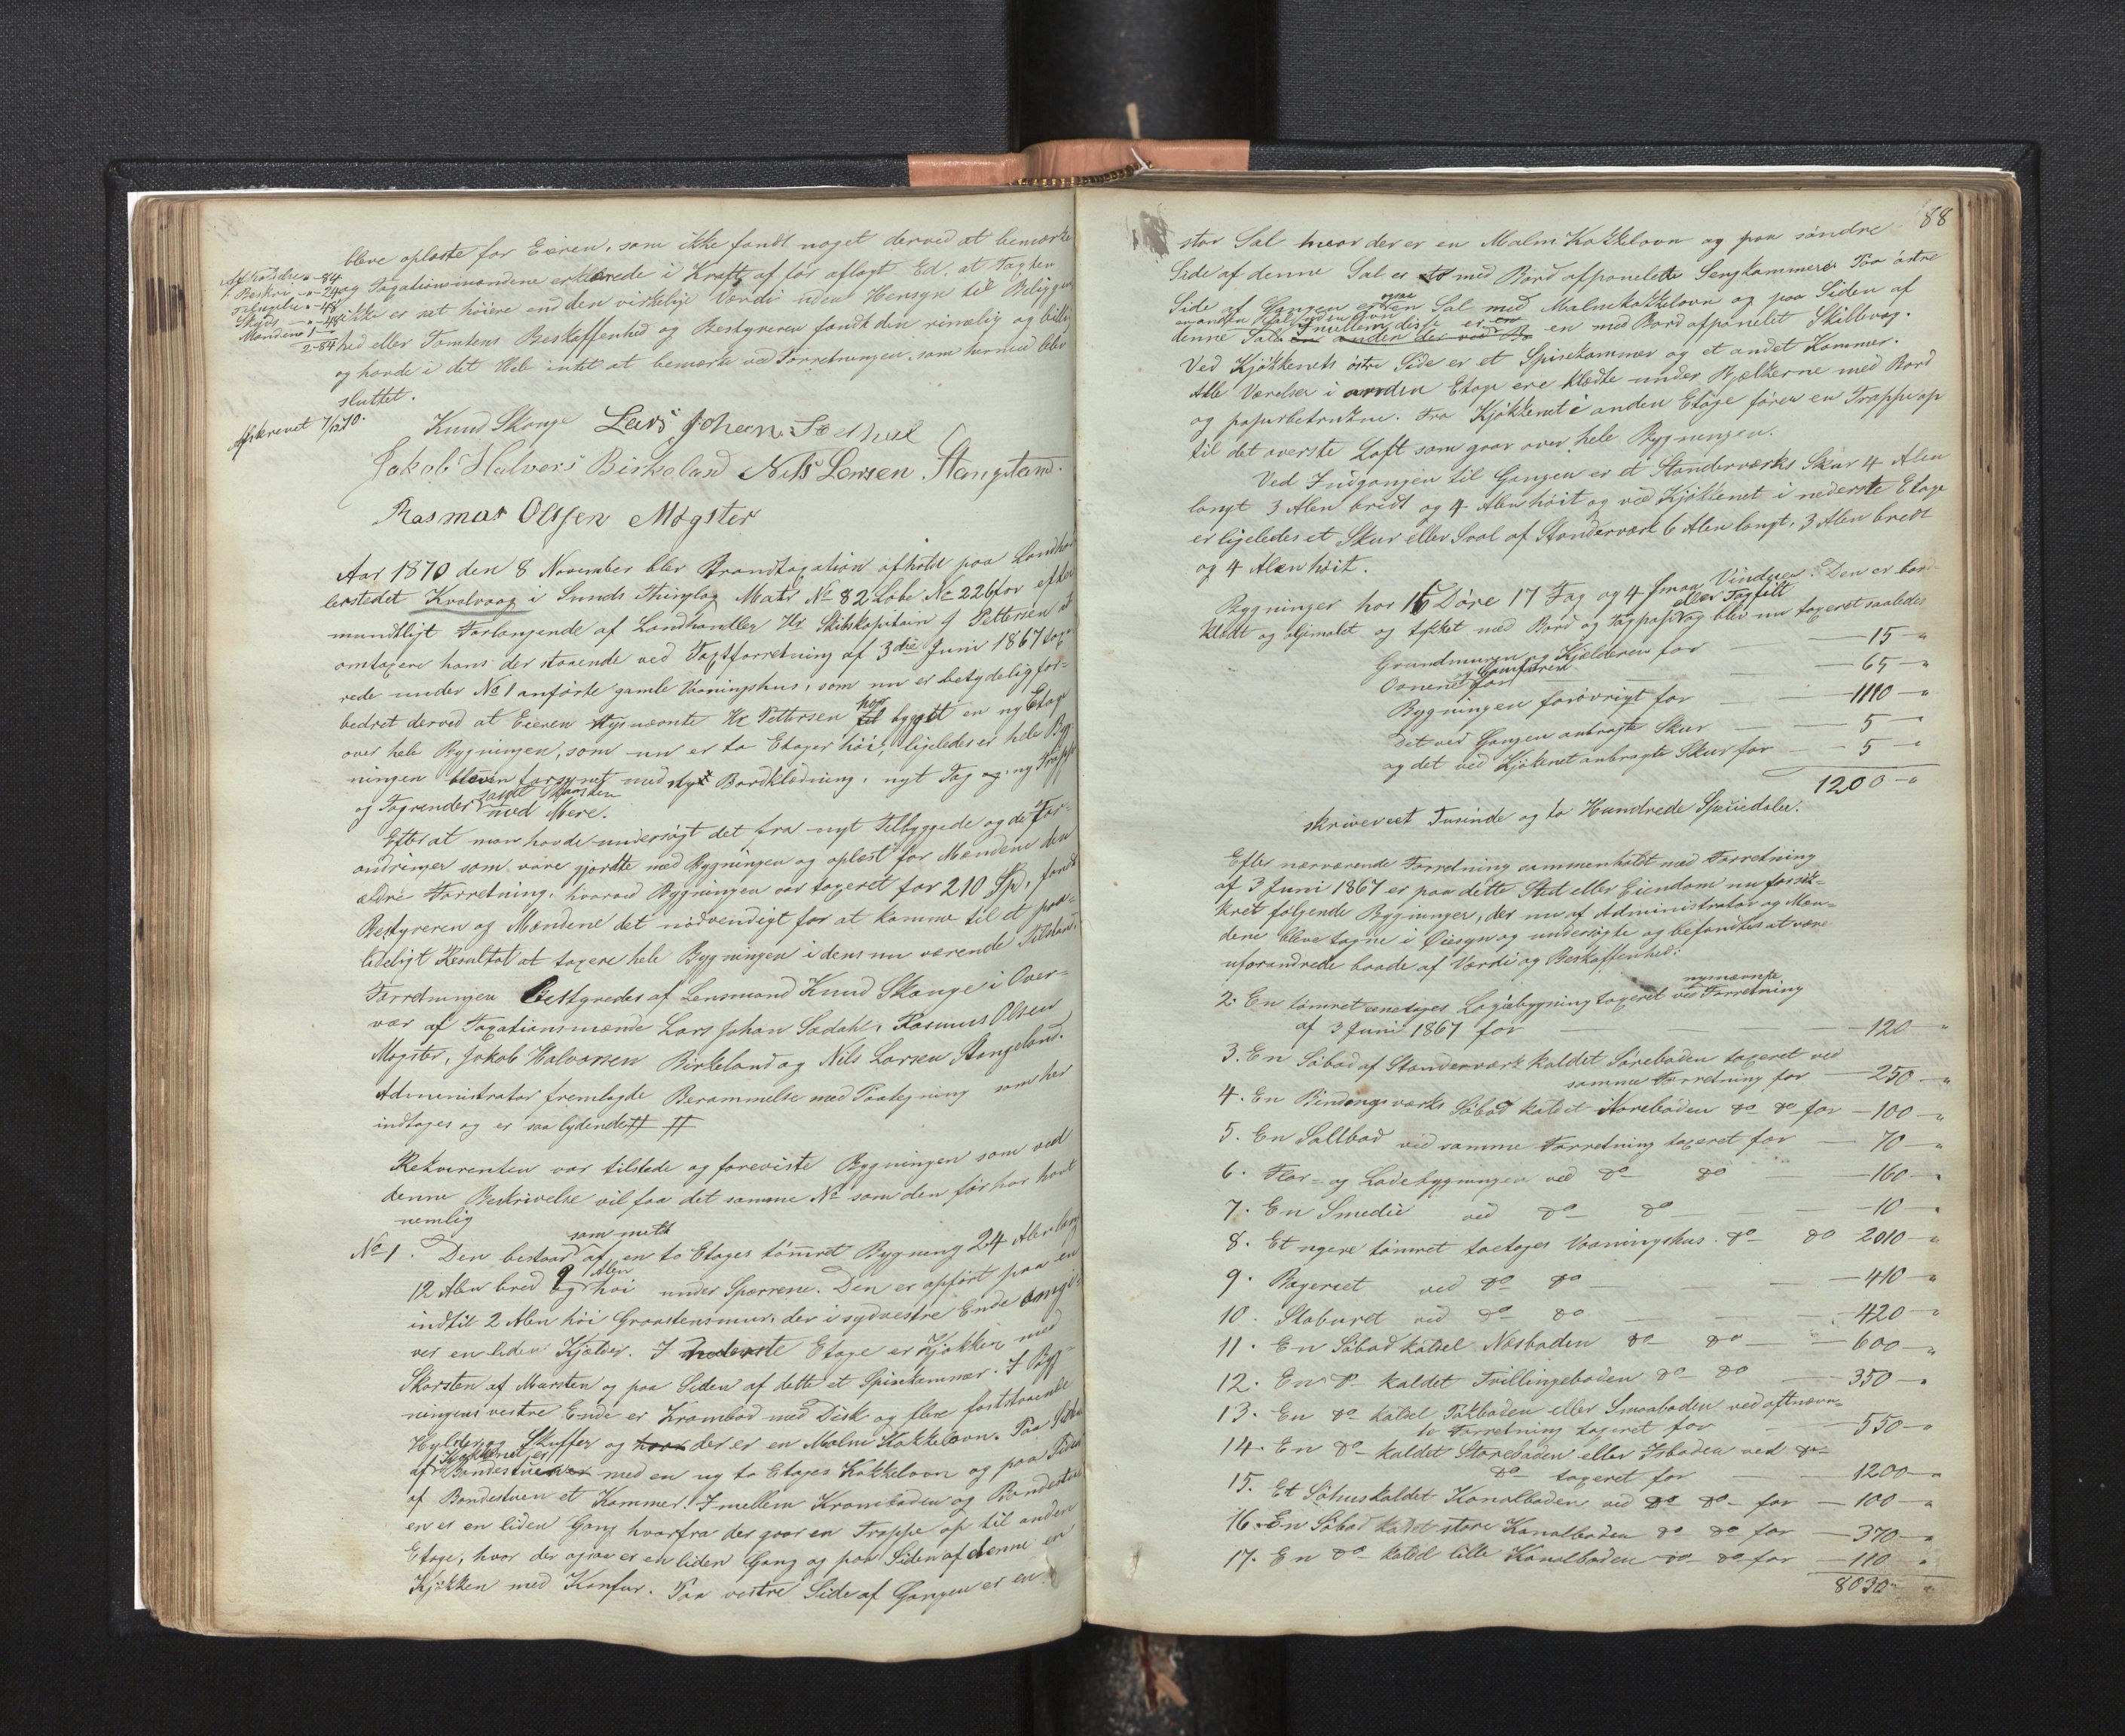 bleve oplæste for Eieren, som ikke fandt noget derved at bemærke
og Taxationsmændene erklærede i Kraft af før aflagt Ed, at Taxten
ikke er sat høiere end den virkelige Værdi uden Hensyn til Beliggen
hed eller Tomtens Beskaffenhed og Bestyreren fandt den rimelig og billig
og havde i det Hele intet at bemærke ved Forretningen, som hermed blev
sluttet.
1 Beskri " - 24
Skyds - " - 48
Mændene 1 -
2-84
Afskrevet 7/12 70.
Knud Skauge Lars Johan Sædhal
Jakob Halvors Birkeland Nils Larsen Stangeland.
Rasmus Olssen Møgster
Aar 1870 den 8 November blev Brandtaxation afholdt paa Landhand
lerstedet Kvalvaag i Sunds Thinglag Matr No 82 Løbe No 226 for efter
mundtligt Forlangende af Landhandler Hr Skibskaptain J Pettersen at
omtaxere hans der staaende ved Taxtforretning af 3die Juni 1867 taxe
rede under No 1 anførte gamle Vaaningshus, som nu er betydelig for=
bedret derved at Eieren nysnævnte Hr Pettersen har til bygget en ny Etage
over hele Bygningen, som nu er to Etager høi, ligeledes er hele Byg
ningen bleven forsynet med nyt Bordklædning, nyt Tag og ny Trappe
og Tagrender samt Skorsten med Mere.
Efter at man havde undersøgt det fra nyt Tilbyggede og de For=
andringer som vare gjordte med Bygningen og oplæst for Mændene den
ældre Forretning, hvorved Bygningen var taxeret for 210 Spd, fandt
Bestyreren og Mændene det nødvendigt for at komme til et paa=
lideligt Resultat at taxere hele Bygningen i dens nu værende Tilstand.
Forretningen Bestyredes af Lensmand Knud Skauge i Over=
vær af Taxationsmænde Lars Johan Sædahl, Rasmus Olsen
Møgster, Jakob Halvorsen Birkeland og Nils Larsen Stangeland.
Administrator fremlagde Berammelse med Paategning som her
indtages og er saa lydende # #
Rekvirenten var tilstede og foreviste Bygningen som ved
denne Beskrivelse vil faa det samme No som den før har havt
nemlig
No 1. Den bestaar som meldt af en to Etages tømret Bygning 24 Alen lang
12 Alen bred og 9 Alen høi under Sparrene. Den er opført paa en
indtil 2 Alen høi Graastensmur, der i sydvestre Ende omgi=
ver en liden Kjælder. I nederste Etage er Kjøkken med
Skorsten af Mursten og paa Siden af dette et Spisekammer. I Byg=
ningens vestre Ende er Krambod med Disk og flere faststaaende
Hylder og Skuffer og hvor der er en Malm Kakkelovn. Paa Siden
af Kjøkkenet er Bondestuen med en ny to Etages Kakkelovn og paa Siden
af Bondestuen et Kammer. Imellem Kramboden og Bondestu
en er en liden Gang hvorfra der gaar en Trappe op til anden
Etage, hvor der ogsaa er en liden Gang og paa Siden af denne er
Kjøkken med Komfur. Paa vestre Side af Gangen er en
88
stor Sal hvor der er en Malm Kakkelovn og paa søndre
Side af denne Sal er to med Bord afpanelede Sengkammere. Paa østre
Side af Gangen er ogsaa en Sal med Malmkakkelovn og paa Siden af
denne Sal en anden uden Ovn Imellem disse er en med Bord afpanelet Skillevæg.
Ved Kjøkkenets østre Side er et Spisekammer og et andet Kammer.
Alle Værelser i anden Etage ere klædte under Bjælkerne med Bord
og papirbetrukne. Fra Kjøkkenet i anden Etage fører en Trappe op
til det øverste Loft som gaar over hele Bygningen.
Ved Indgangen til Gangen er et Standerværks Skur 4 Alen
langt 3 Alen bredt og 4 Alen høit og ved Kjøkkenet i nederste Etage
er ligeledes et Skur eller Sval af Standerværk 6 Alen langt, 3 Alen bredt
og 4 Alen høit.
Bygningen har 16 Døre 17 Fag og 4 smaa Vinduer. Den er bord
klædt og oljmalet og tækket med Bord og Tagpap eller Tagfilt og blev nu taxeret saaledes
Grundmuren og Kjælderen for — 15 "
Ovnene og Comfuren for — 65 "
Bygningen forøvrigt for — 1110 "
det ved Gangen anbragte Skur — 5 "
og det ved Kjøkenet anbragte Skur for — 5 "
1200 "
skriver eet Tusinde og to Hundrede Speciedaler.
Efter nærværende Forretning sammenholdt med Forretning
af 3 Juni 1867 er paa dette Sted eller Eiendom nu forsik=
kret følgende Bygninger, der nu af Administrator og Mæn=
dene bleve tagne i Øiesyn og undersøgte og befandtes at være
uforandrede baade af Værdi og Beskaffenhed:
2. En tømret eenetages Logiebygning taxeret ved nysnævnte Forretning
af 3 Juni 1867 for — 120 "
3. En Søbod af Standerværk kaldet Søreboden taxeret ved
samme Forretning for — 250 "
4. En Bindingsværks Søbod kaldet Noreboden do do for — 100 "
5. En Saltbod ved samme Forretning taxeret for — 70 "
6. Flor= og Ladebygningen ved do do — 160 "
7. En Smedie ved do do — 10 "
8. Et nyere tømret toetages Vaaningshus do do 2010 "
9. Bageriet ved do do — 410 "
10. Staburet ved do do — 420 "
11. En Søbod kaldet Næsboden do do — 600 "
12. En do kaldet Tvillingeboden do do — 350 "
13. En do kaldet Pakboden eller Smaaboden ved oftnævn=
te Forretning taxeret for — 550 "
14. En do kaldet Storeboden eller Isboden ved do
do taxeret for — 1200 "
15. Et Søhus kaldet Kanalboden ved do do for — 100 "
16. En Søbod kaldet store Kanalboden do do for — 370 "
17. En do kaldet lille Kanalboden do do for — 110 "
8030 "